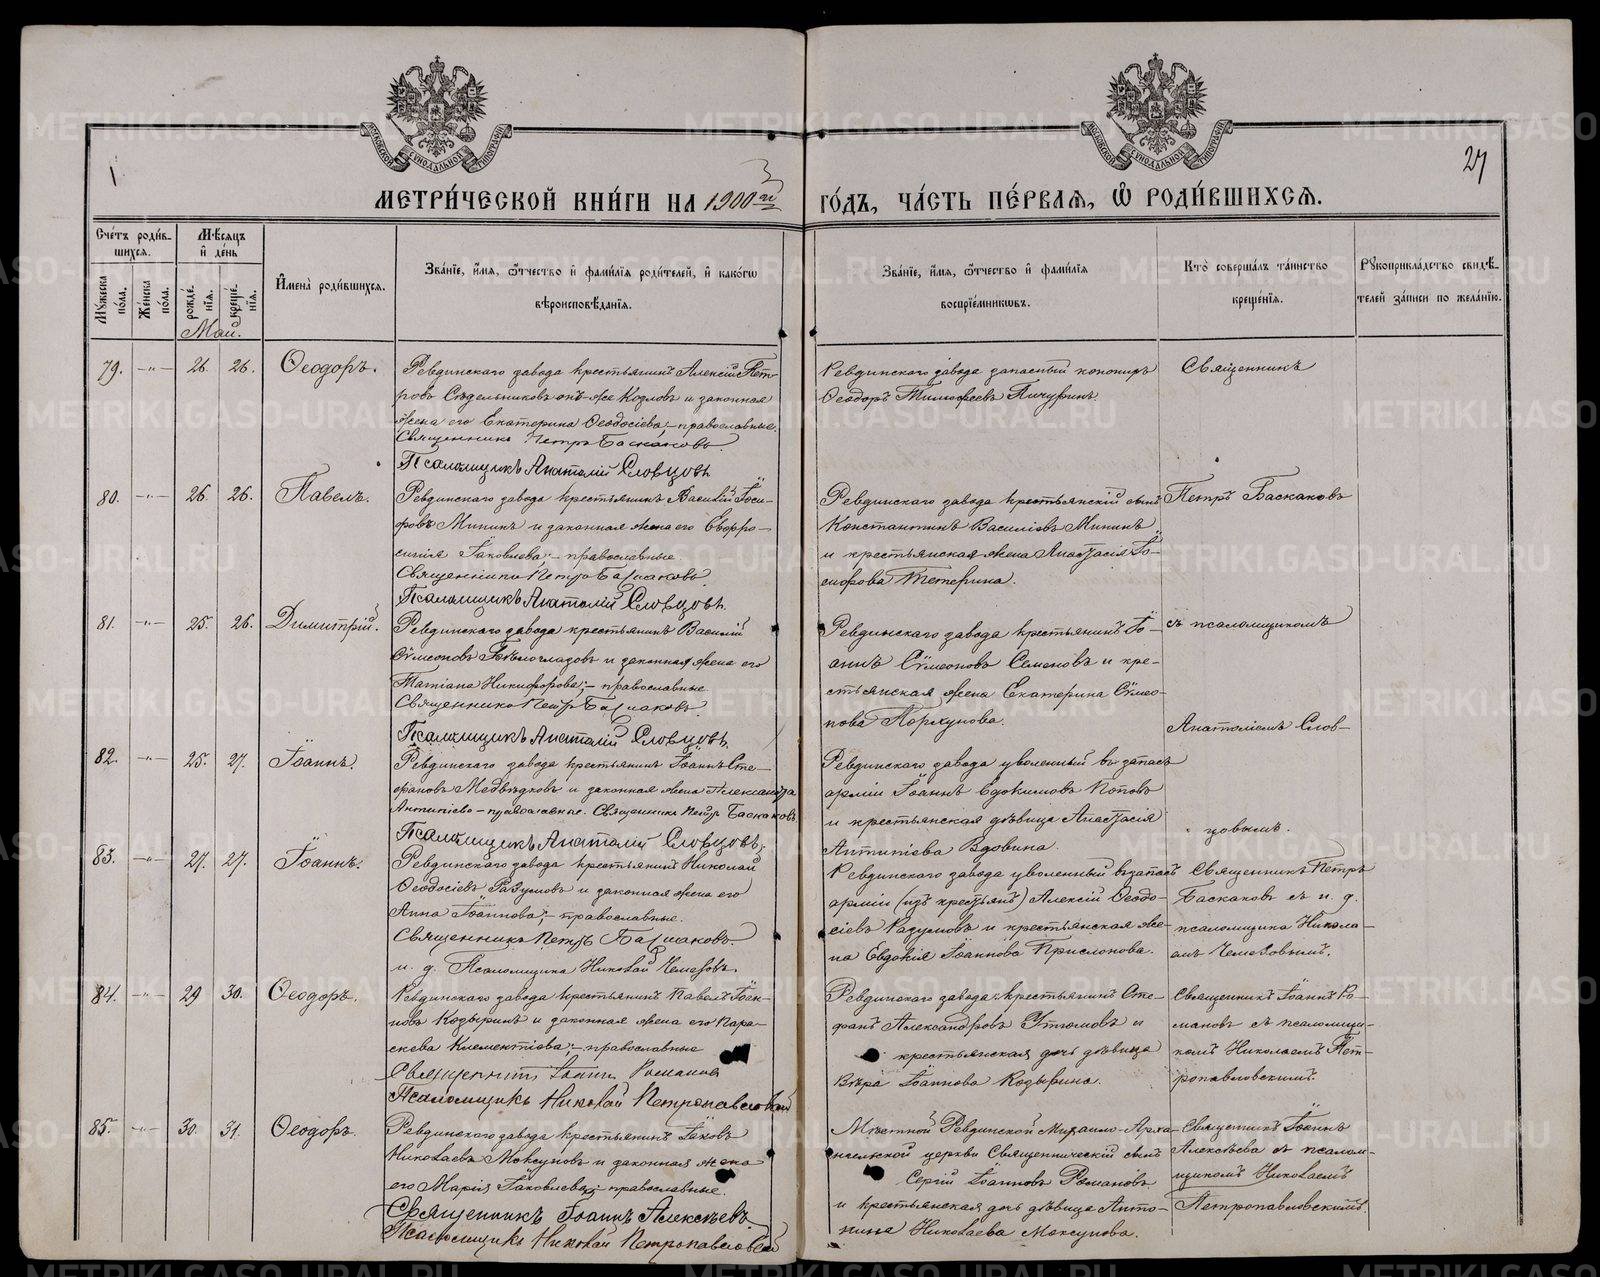 МОСКОВСКОЙ СУНОДАЛЬНОЙ ТИПОГРАФИИ
МОСКОВСКОЙ СУНОДАЛЬНОЙ ТИПОГРАФИИ
27
МЕТРИ́ЧЕСКОЙ КНИ́ГИ НА 1900 й
ГО́ДЪ, ЧА́СТЬ ПЕ́РВАѦ, Ѿ РОДИ́ВШИХСѦ.
Сче́тъ роди́вшихсѧ.
Мѣ́сѧцъ и де́нь
Мꙋ́жеска по́ла.
Же́нска по́ла.
рожде́нїѧ.
креще́нїѧ.
И҆мена̀ роди́вшихсѧ.
Зва́нїе, и҆́мѧ, ѻ҆́тчество и҆ фами́лїѧ роди́телей, и҆ како́гѡ вѣроисповѣ́данїѧ.
Зва́нїе, и҆́мѧ, ѻ҆́тчество и҆ фами́лїѧ воспрїе́мникѡвъ.
Кто̀ соверша́лъ та́инство креще́нїѧ.
Рꙋкоприкла́дство свидѣ́телей за́писи по жела́нїю.
Май.
79. -"- 26. 26. Ѳеодоръ.
Ревдинскаго завода крестьянинъ Алексій Петровъ Сѣдельниковъ онъ же Козловъ и законная
жена его Екатерина Ѳеодосіева; - православные.
Священникъ Петръ Баскаковъ.
Псаломщикъ Анатолій Словцовъ.
Ревдинскаго завода запасный
Ѳеодоръ Тимоѳеевъ Пичугинъ.
Священникъ
80. -"- 26. 26. Павелъ.
Ревдинскаго завода крестьянинъ Василій Іосифовъ Мининъ и законная жена его Евфросинія Іаковлева; - православные
Священникъ Петръ Баскаковъ.
Псаломщикъ Анатолій Словцовъ.
Ревдинскаго завода крестьянскій сынъ
Константинъ Василіевъ Мининъ
и крестьянская жена Анастасія Іосифова Тетерина.
Петръ Баскаковъ
81. -"- 25. 26. Димитрій.
Ревдинскаго завода крестьянинъ Василій
Сѵмеоновъ Бѣлоглазовъ и законная жена его
Татіана Никифорова; - православные.
Священникъ Петръ Баскаковъ.
Псаломщикъ Анатолій Словцовъ.
Ревдинскаго завода крестьянинъ Іоаннъ Сѵмеоновъ Семеновъ и крестьянская жена Екатерина Сѵмеонова
съ псаломщикомъ
Анатоліемъ Словцовымъ.
82. -"- 25. 27. Іоаннъ.
Ревдинскаго завода крестьянинъ Іоаннъ Стефановъ Медвѣдковъ и законная жена Александра
Антипіева - православные. Священникъ Петръ Баскаковъ.
Псаломщикъ Анатолій Словцовъ.
Ревдинскаго завода уволенный въ запасъ
арміи Іоаннъ Евдокимовъ Поповъ
и крестьянская дѣвица Анастасія
Антипіева Вдовина.
83. -"- 27. 27. Іоаннъ.
Ревдинскаго завода крестьянинъ Николай
Ѳеодосіевъ Разумовъ и законная жена его
Анна Іоаннова; - православные.
Священникъ Петръ Баскаковъ.
и. д. Псаломщика Николай Чемезовъ.
Ревдинскаго завода уволенный въ запасъ
арміи (изъ крестьянъ) Алексій Ѳеодосіевъ Разумовъ и крестьянская жена Евдокія Іоаннова Прислонова.
Священникъ Петръ
Баскаковъ съ и. д.
псаломщика Николаемъ Чемезовымъ.
84. -"- 29 30. Ѳеодоръ.
Ревдинскаго завода крестьянинъ Павелъ Іоанновъ Козыринъ и законная жена его Параскева Климентіева; - православные
Священникъ Іоаннъ Романовъ
Псаломщикъ Николай Петропавловскій
Ревдинскаго завода: крестьянинъ Стефанъ Александровъ Утюмовъ и
крестьянская дочь дѣвица
Вѣра Іоаннова Козырина.
Священникъ Іоаннъ Романовъ съ псаломщикомъ Николаемъ Петропавловскимъ.
85. -"- 30. 31. Ѳеодоръ.
Ревдинскаго завода крестьянинъ Іаковъ
Николаевъ Моксуновъ и законная жена
его Марія Іаковлева; православные.
Священникъ Іоаннъ Алексѣевъ.
Псаломщикъ Николай Петропавловскій
Мѣстной Ревдинской Михаило-Архангельской церкви Священническій сынъ
Сергій Іоанновъ Романовъ
и крестьянская дочь дѣвица Антонина Николаева Моксунова.
Священникъ Іоаннъ
Алексѣевъ съ псаломщикомъ Николаемъ
Петропавловскимъ.
METRIKI.GASO-URAL.RU